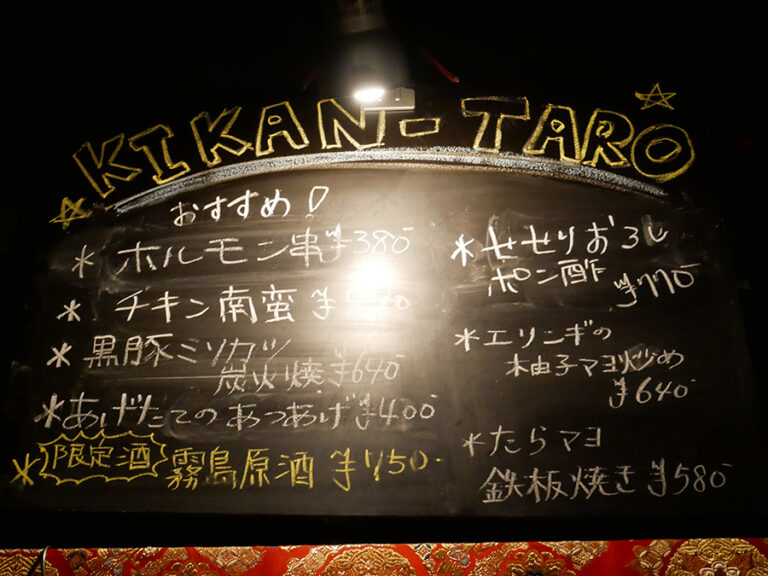 KIKAN-TARO
おすすめ!
* ホルモン串 ¥380
* チキン南蛮 ¥
* 黒豚ミソカツ
炭火焼 ¥640
* あげたてのあつあげ ¥400
* 限定酒 霧島原酒 ¥750
* せせりおろし
ポン酢 ¥770
* エリンギの
柚子マヨ炒め
¥640
* たらマヨ
鉄板焼き ¥580